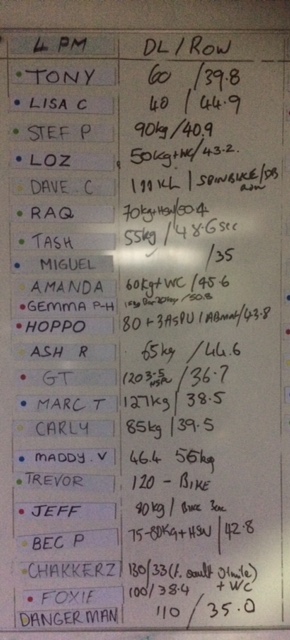 4 PM DL/ROW
TONY 60 /39.8
LISA C 40 /44.9
STEF P 90kg/40.9
LOZ 50kg+WC/43.2
DAVE.C SPINBIKE/DB
RAQ 70kg+HSW/50.4
TASH 55kg /48.6sec
MIGUEL /35
AMANDA 60kg+WC /45.6
GEMMA P-H /50.8
HOPPO 80+3 /43.8
ASH R 65kg /44.6
GT 120 /36.7
MARC T 127kg/38.5
CARLY 85kg/39.5
MADDY.V 46.4 56kg
TREVOR 120 - BIKE
JEFF 80kg/ BIKE
BEC P 75-80kg+HSW /42.8
CHAKKERZ 130/33
FOXIE 100/38.4 + WC
DANGERMAN 110 /35.0